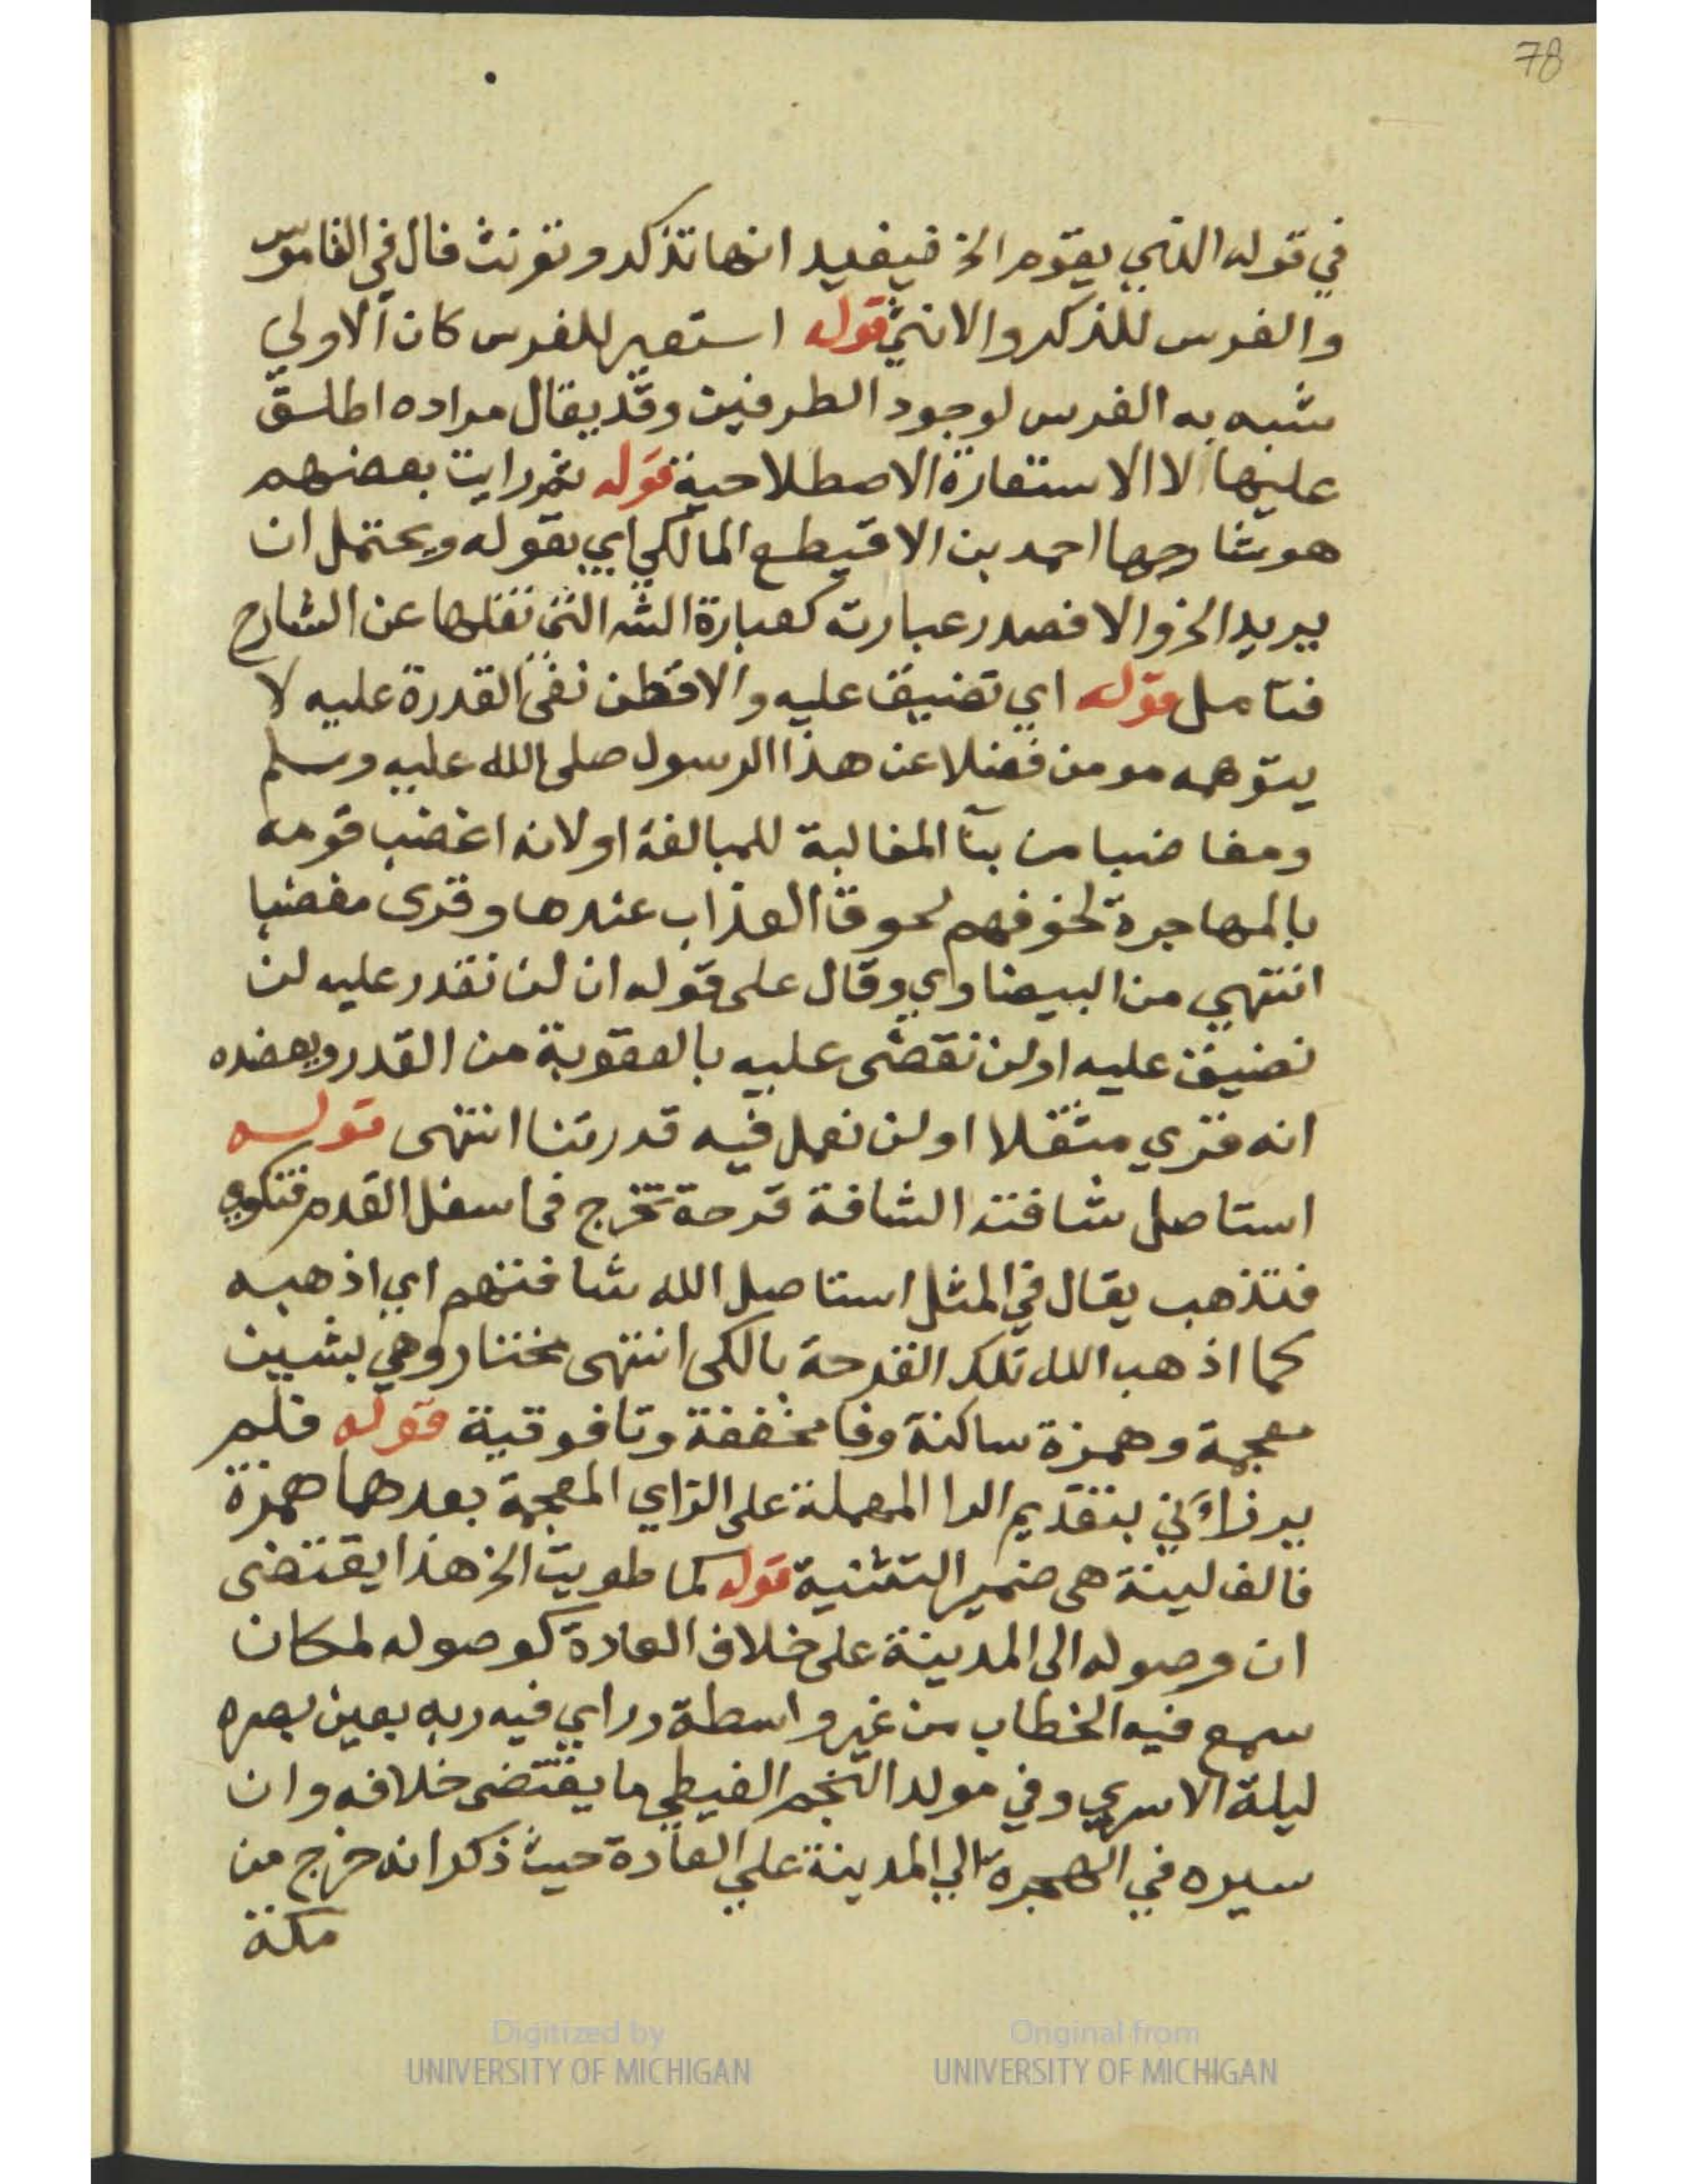 78
في قوله الذي يقوم الخ فيفيد انها تذكر وتؤنث قال في القاموس
والفرس للذكر والانثى قوله استعير للفرس كان الاولي
شبه به الفرس لوجود الطرفين وقد يقال مراده اطلق
عليها لا الاستعارة الاصطلاحية قوله ثم رايت بعضهم
هو شارحها احمد بن الاقيطع المالكي اي بقوله ويحتمل ان
يريد الخ والا فصدر عبارته كعبارة الش التى نقلها عن الشارح
فتامل قوله اي تضييق عليه والا فظن نفى القدرة عليه لا
يتوهمه مومن فضلا عن هذا الرسول صلى الله عليه وسلم
ومغاضبا من بنآ المغالبة للمبالغة او لانه اغضب قومه
بالمهاجرة لخوفهم لحوق العذاب عندها وقرى مغضبا
انتهي من البيضاوي وقال على قوله ان لن نقدر عليه لن
نضيق عليه اولن نقضى عليه بالعقوبة من القدر ويعضده
انه قري مثقلا اولن نعمل فيه قدرتنا انتهى قوله
استاصل شافته الشافة قرحة تخرج فى اسفل القدم فتكوي
فتذهب يقال في المثل استاصل الله شافتهم اي اذهبه
كما اذهب الله تلك القرحة بالكى انتهى مختار وهي بشين
معجمة وهمزة ساكنة وفا مخففة وتا فوقية قوله فلم
يرزاني بتقديم الرا المهملة على الزاي المعجمة بعدها همزة
فالف لينة هى ضمير التثنية قوله كما طويت الخ هذا يقتضى
ان وصوله الى المدينة على خلاف العادة كوصوله لمكان
سمع فيه الخطاب من غير واسطة وراي فيه ربه بعين بصره
ليلة الاسري وفي مولد النجم الغيطي ما يقتضى خلافه وان
سيره في الهجرة الي المدينة علي العادة حيث ذكر انه خرج من
مكة
Digitized by
UNIVERSITY OF MICHIGAN
Original from
UNIVERSITY OF MICHIGAN